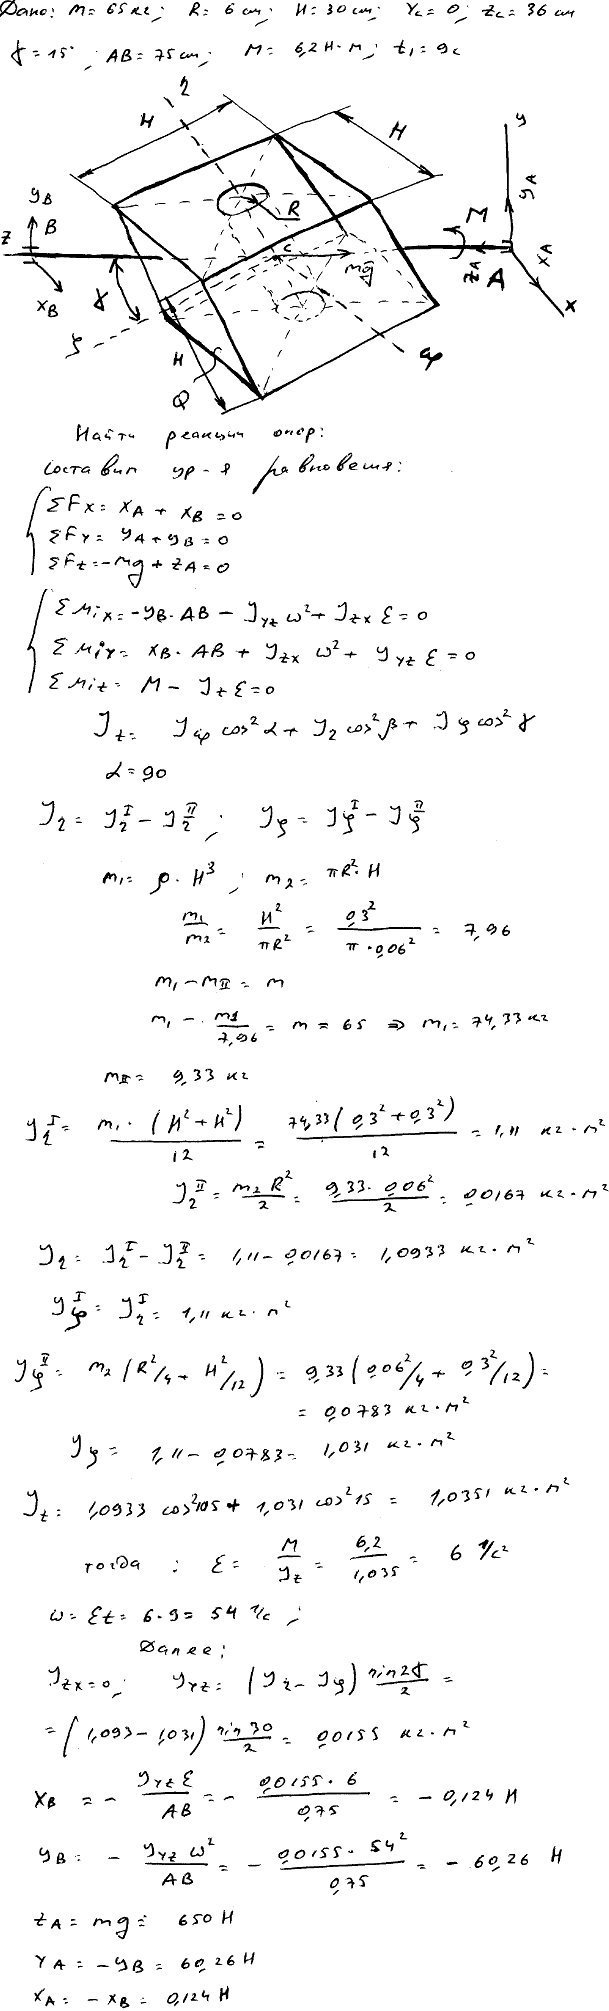 Дано: M = 65 кг; R = 6 см; H = 30 см; Yc = 0; Zc = 36 см
γ = 15°; AB = 75 см; M = 6,2 Н·м; t₁ = 9 с
2
H
H
y
yB
B
z
R
M
yA
xA
c
mg
zA
A
xB
γ
x
ξ
H
φ
Q
Найти реакции опор:
Составим ур-я равновесия:
ΣFx = xA + xB = 0
ΣFy = yA + yB = 0
ΣFz = -mg + zA = 0
ΣMix = -yB·AB - Jyz ω² + Jzx ε = 0
ΣMiy = xB·AB + Jzx ω² + Jyz ε = 0
ΣMiz = M - Jz ε = 0
Jz = Jφ cos²α + J2 cos²β + Jξ cos²γ
α = 90
J2 = J2^I - J2^II; Jξ = Jξ^I - Jξ^II
m₁ = ρ·H³; m₂ = πR²·H
m₁/m₂ = H²/πR² = 0,3²/π·0,06² = 7,96
m₁ - mII = m
m₁ - m1/7,96 = m = 65 ⇒ m₁ = 74,33 кг
mII = 9,33 кг
J2^I = m₁·(H²+H²)/12 = 74,33(0,3²+0,3²)/12 = 1,11 кг·м²
J2^II = m₂R²/2 = 9,33·0,06²/2 = 0,0167 кг·м²
J2 = J2^I - J2^II = 1,11 - 0,0167 = 1,0933 кг·м²
Jξ^I = J2^I = 1,11 кг·м²
Jξ^II = m₂(R²/4 + H²/12) = 9,33(0,06²/4 + 0,3²/12) =
= 0,0783 кг·м²
Jξ = 1,11 - 0,0783 = 1,031 кг·м²
Jz = 1,0933 cos²105 + 1,031 cos²15 = 1,0351 кг·м²
тогда: ε = M/Jz = 6,2/1,035 = 6 1/с²
ω = εt = 6·9 = 54 1/с;
Далее;
Jzx = 0; Jyz = (J2 - Jξ) sin2γ/2 =
= (1,093 - 1,031) sin30/2 = 0,0155 кг·м²
xB = - Jyz ε/AB = - 0,0155·6/0,75 = -0,124 Н
yB = - Jyz ω²/AB = - 0,0155·54²/0,75 = -60,26 Н
zA = mg = 650 Н
YA = -yB = 60,26 Н
XA = -xB = 0,124 Н